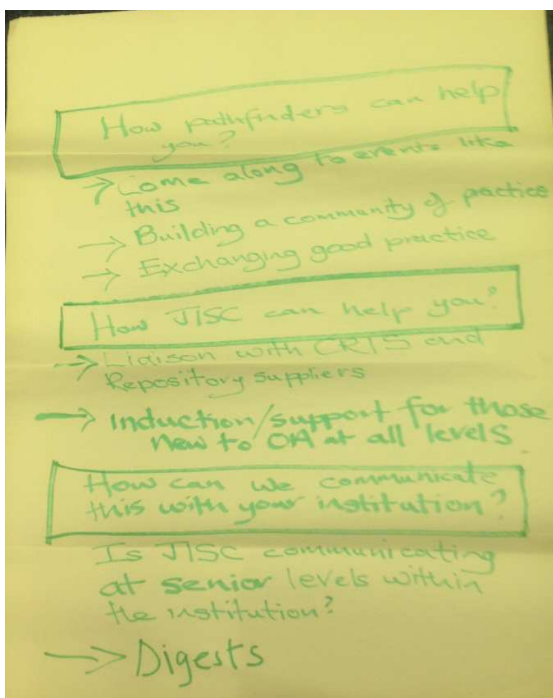 How pathfinders can help
you?
→ Come along to events like
this
→ Building a community of practice
→ Exchanging good practice
How JISC can help you?
→ Liaison with CRIS and
Repository suppliers
→ Induction/support for those
new to OA at all levels
How can we communicate
this with your institution?
Is JISC communicating
at senior levels within
the institution?
→ Digests